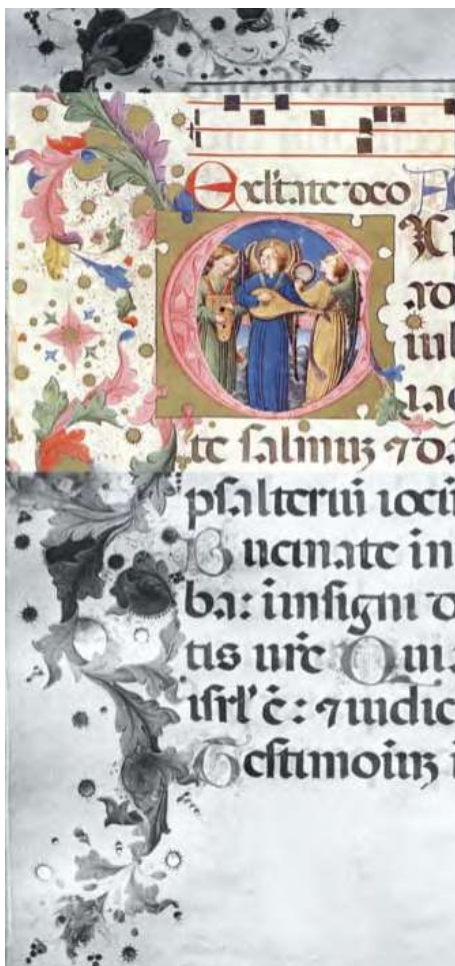 Exltate deo A
iub
iac
te salmuz ⁊ da
psalteriū iocū
Bucinate in
ba: insigni d
tis ur̄e Qui
isrl' ē: ⁊ iudic
Testimoiuz i